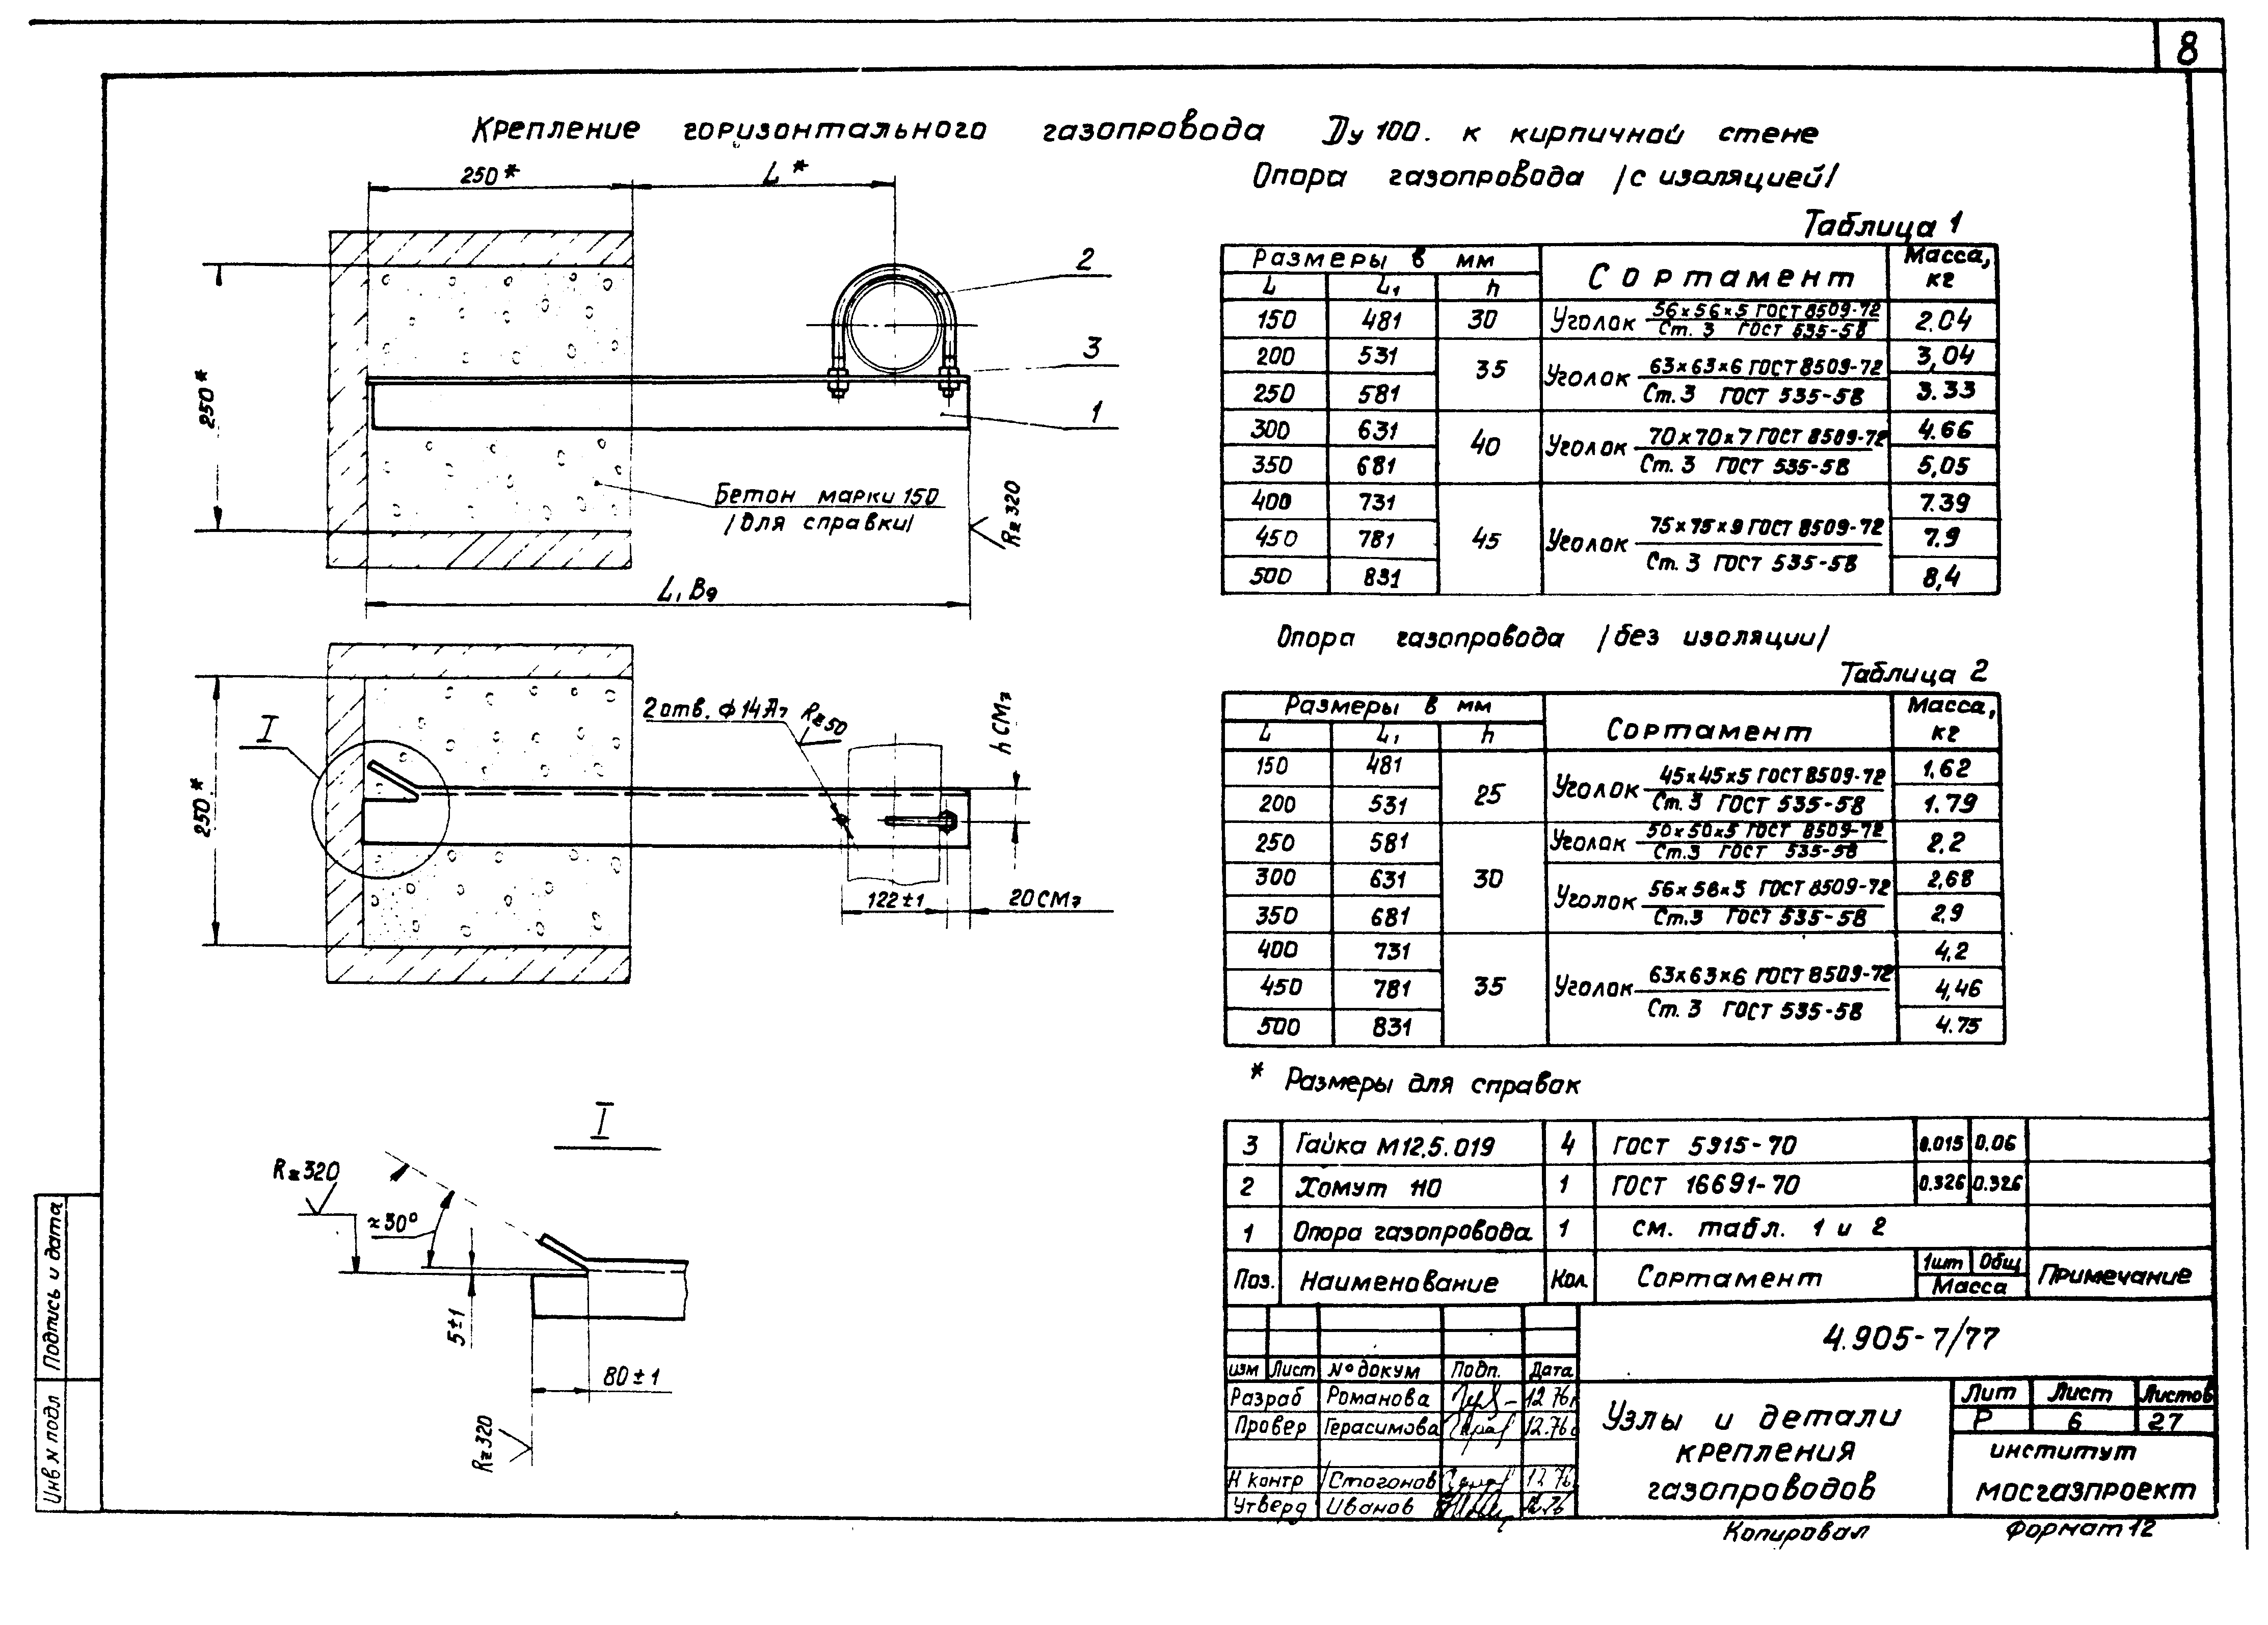 8
Крепление горизонтального газопровода Ду 100. к кирпичной стене
Опора газопровода /с изоляцией/
Таблица 1
Размеры в мм Сортамент Масса, кг
L L₁ h
150 481 30 Уголок 56×56×5 ГОСТ 8509-72 / Ст. 3 ГОСТ 535-58 2.04
200 531 35 Уголок 63×63×6 ГОСТ 8509-72 / Ст. 3 ГОСТ 535-58 3,04
250 581 3.33
300 631 40 Уголок 70×70×7 ГОСТ 8509-72 / Ст. 3 ГОСТ 535-58 4.66
350 681 5,05
400 731 45 Уголок 75×75×9 ГОСТ 8509-72 / Ст. 3 ГОСТ 535-58 7.39
450 781 7.9
500 831 8,4
Опора газопровода /без изоляции/
Таблица 2
Размеры в мм Сортамент Масса, кг
L L₁ h
150 481 25 Уголок 45×45×5 ГОСТ 8509-72 / Ст. 3 ГОСТ 535-58 1,62
200 531 1.79
250 581 30 Уголок 50×50×5 ГОСТ 8509-72 / Ст.3 ГОСТ 535-58 2,2
300 631 Уголок 56×56×5 ГОСТ 8509-72 / Ст.3 ГОСТ 535-58 2,68
350 681 2,9
400 731 35 Уголок 63×63×6 ГОСТ 8509-72 / Ст. 3 ГОСТ 535-58 4,2
450 781 4,46
500 831 4.75
* Размеры для справок
250*
L*
2
3
1
250*
Бетон марки 150
/для справки/
Rz 320
L₁ В9
I
2 отв. ф 14 А7
Rz 50
h СМ7
250*
122±1
20 СМ7
I
Rz 320
≈30°
5±1
80±1
Rz 320
3 Гайка М12.5.019 4 ГОСТ 5915-70 0.015 0.06
2 Хомут 110 1 ГОСТ 16691-70 0.326 0.326
1 Опора газопровода 1 см. табл. 1 и 2
Поз. Наименование Кол. Сортамент 1шт Общ Масса Примечание
4.905-7/77
изм Лист № докум Подп. Дата
Разраб Романова 12 76г
Провер Герасимова 12.76г
Н контр Стогонов 12 76
Утверд Иванов 12.76
Узлы и детали
крепления
газопроводов
Лит Лист Листов
Р 6 27
институт
мосгазпроект
Копировал Формат 12
Подпись и дата
Инв № подл